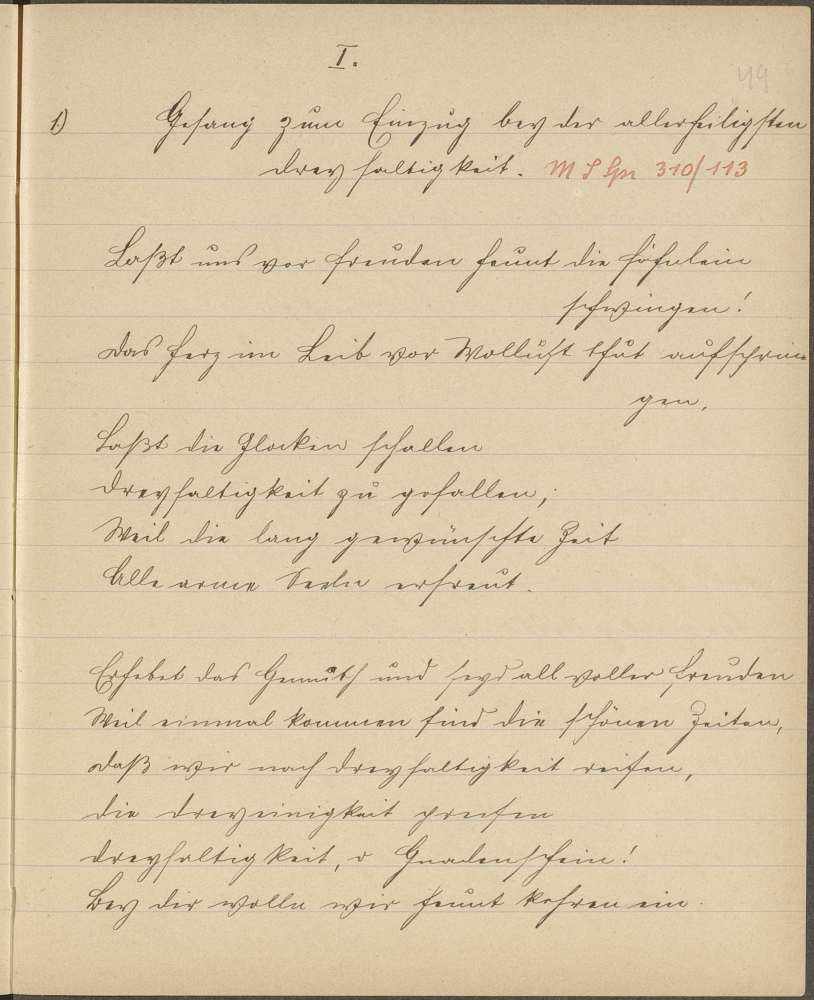 I.
49
1.) Gesang zum Einzug bey der allerheiligsten
Dreyfaltigkeit. M S Gr 310/113
Laßt uns vor Freuden heunt die Föhnlein
schwingen!
Das Herz im Leib vor Wollust thut aufsprin-
gen.
Laßt die Glocken schallen
Dreyfaltigkeit zu gefallen,
Weil die lang gewünschte Zeit
Alle arme Seeln erfreut.
Erhebet das Gemüth und seyd all voller Freuden
Weil einmal kommen sind die schönen Zeiten,
Daß wir nach Dreyfaltigkeit reisen,
Die Dreyeinigkeit preisen
Dreyfaltigkeit, o Gnadenschein!
Bey dir wolln wir heunt kehren ein.